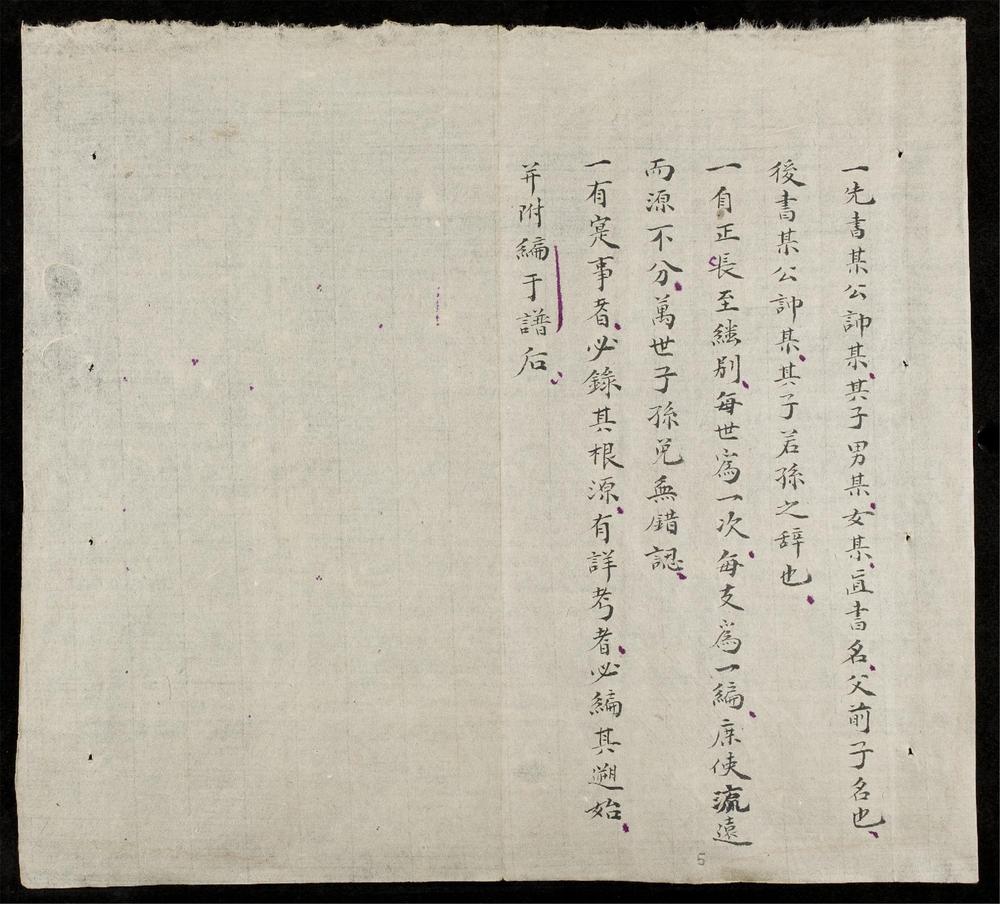 一先書某公諱某其子男某女某直書名父前子名也
後書某公諱某其子若孫之辞也
一自正長至継别每世為一次每支為一編庶使流遠
而源不分萬世子孫免無錯認
一有寔事者必錄其根源有詳考者必編其遡始
并附編于譜后
5